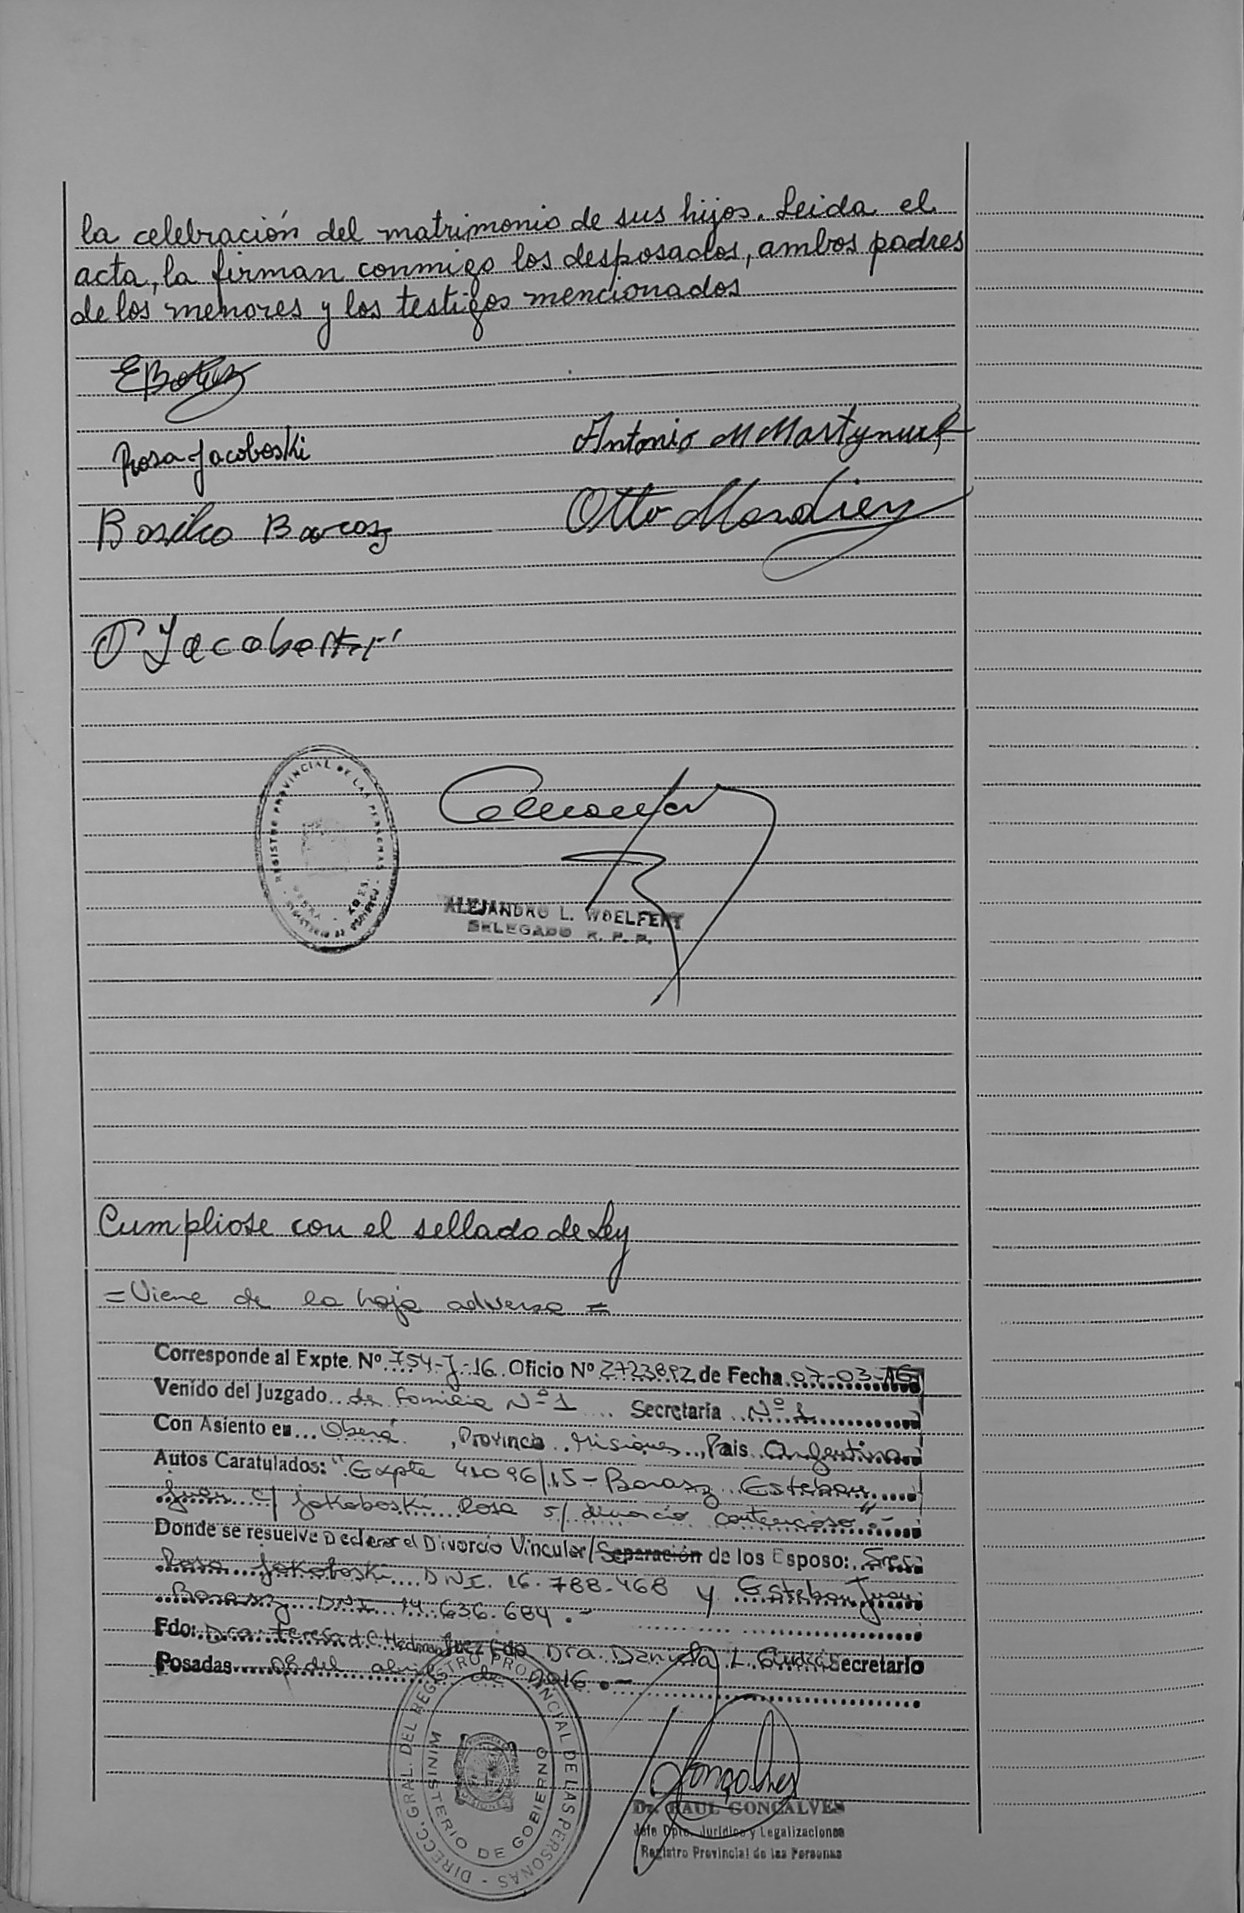 la celebración del matrimonio de sus hijos. Leida el
acta, la firman conmigo los desposados, ambos padres
de los menores y los testigos mencionados
Rosa Jacoboski
Antonio M Martynuk
Otto
O Jacoboski
REGISTRO PROVINCIAL DE LAS PERSONAS
ALEJANDRO L. WOELFERT
DELEGADO R. P. P.
Cumpliose con el sellado de Ley
= Viene de la hoja adversa =
Corresponde al Expte. Nº 754-J-16. Oficio Nº 2723892 de Fecha 07-03-16
Venido del Juzgado de Familia Nº 1 Secretaría Nº 1
Con Asiento en Oberá, Provincia Misiones, Pais Argentina
Autos Caratulados: "Expte 41096/15 - Borasz Esteban
Juan c/ Jakoboski Rosa s/ divorcio contencioso".-
Donde se resuelve Declarar el Divorcio Vincular/Separación de los Esposo: Sres.
Rosa Jakoboski DNI. 16.788.468 y Esteban Juan
Borasz DNI 14.636.684.-
Fdo: Dra. Teresa Juez Fdo Dra. Daniela L. Secretario
Posadas 08 del abril de 2016.-
DIRECC. GRAL. DEL REGISTRO PROVINCIAL DE LAS PERSONAS -
MINISTERIO DE GOBIERNO
Gonçalves
Dr. RAUL GONCALVES
Jefe Dpto. Jurídico y Legalizaciones
Registro Provincial de las Personas